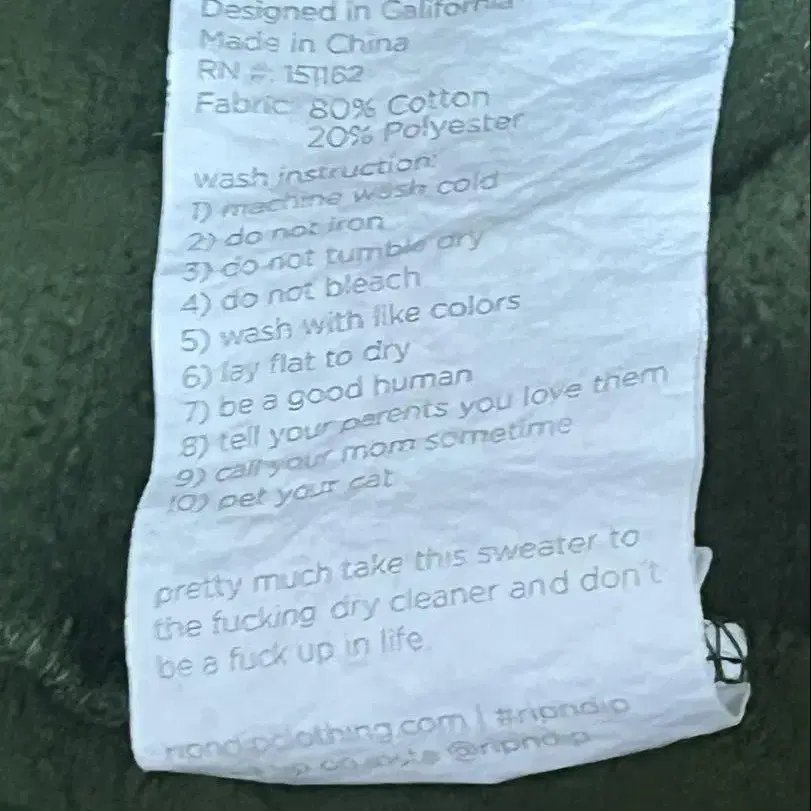 Designed in California
Made in China
RN #: 151162
Fabric: 80% Cotton
20% Polyester
wash instruction:
1) machine wash cold
2) do not iron
3) do not tumble dry
4) do not bleach
5) wash with like colors
6) lay flat to dry
7) be a good human
8) tell your parents you love them
9) call your mom sometime
10) pet your cat
pretty much take this sweater to
the fucking dry cleaner and don't
be a fuck up in life.
ripndipclothing.com | #ripndip
@ripndip